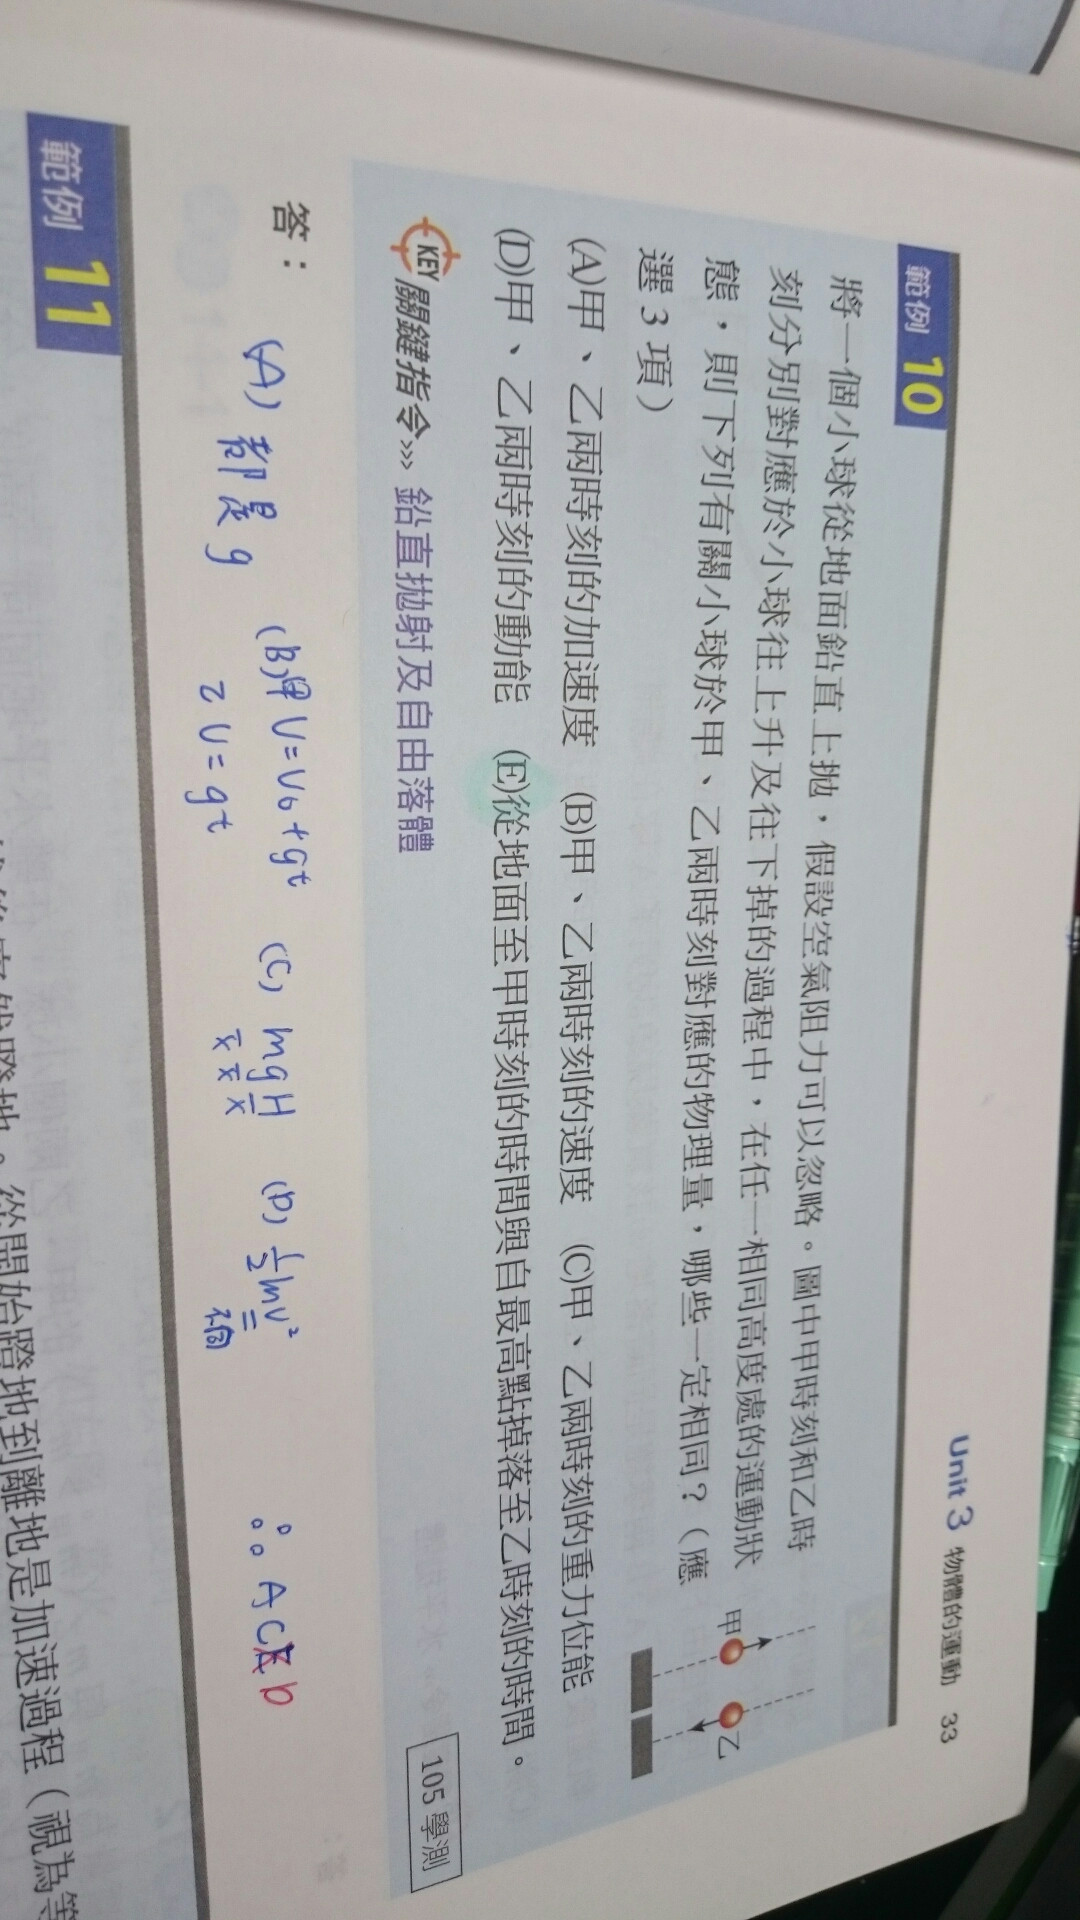 Unit 3 物體的運動 33
範例 10
將一個小球從地面鉛直上拋，假設空氣阻力可以忽略。圖中甲時刻和乙時
刻分別對應於小球往上升及往下掉的過程中，在任一相同高度處的運動狀
態，則下列有關小球於甲、乙兩時刻對應的物理量，哪些一定相同？（應
選 3 項）
甲
乙
(A)甲、乙兩時刻的加速度 (B)甲、乙兩時刻的速度 (C)甲、乙兩時刻的重力位能
(D)甲、乙兩時刻的動能 (E)從地面至甲時刻的時間與自最高點掉落至乙時刻的時間。
105 學測
KEY 關鍵指令>>> 鉛直拋射及自由落體
答：
(A) 都是g
(B)甲 V=V₀+gt
乙 V=gt
(C) mgH
(D) ½mv²
∴ACE D
範例 11
從開始蹬地到離地是加速過程（視為等